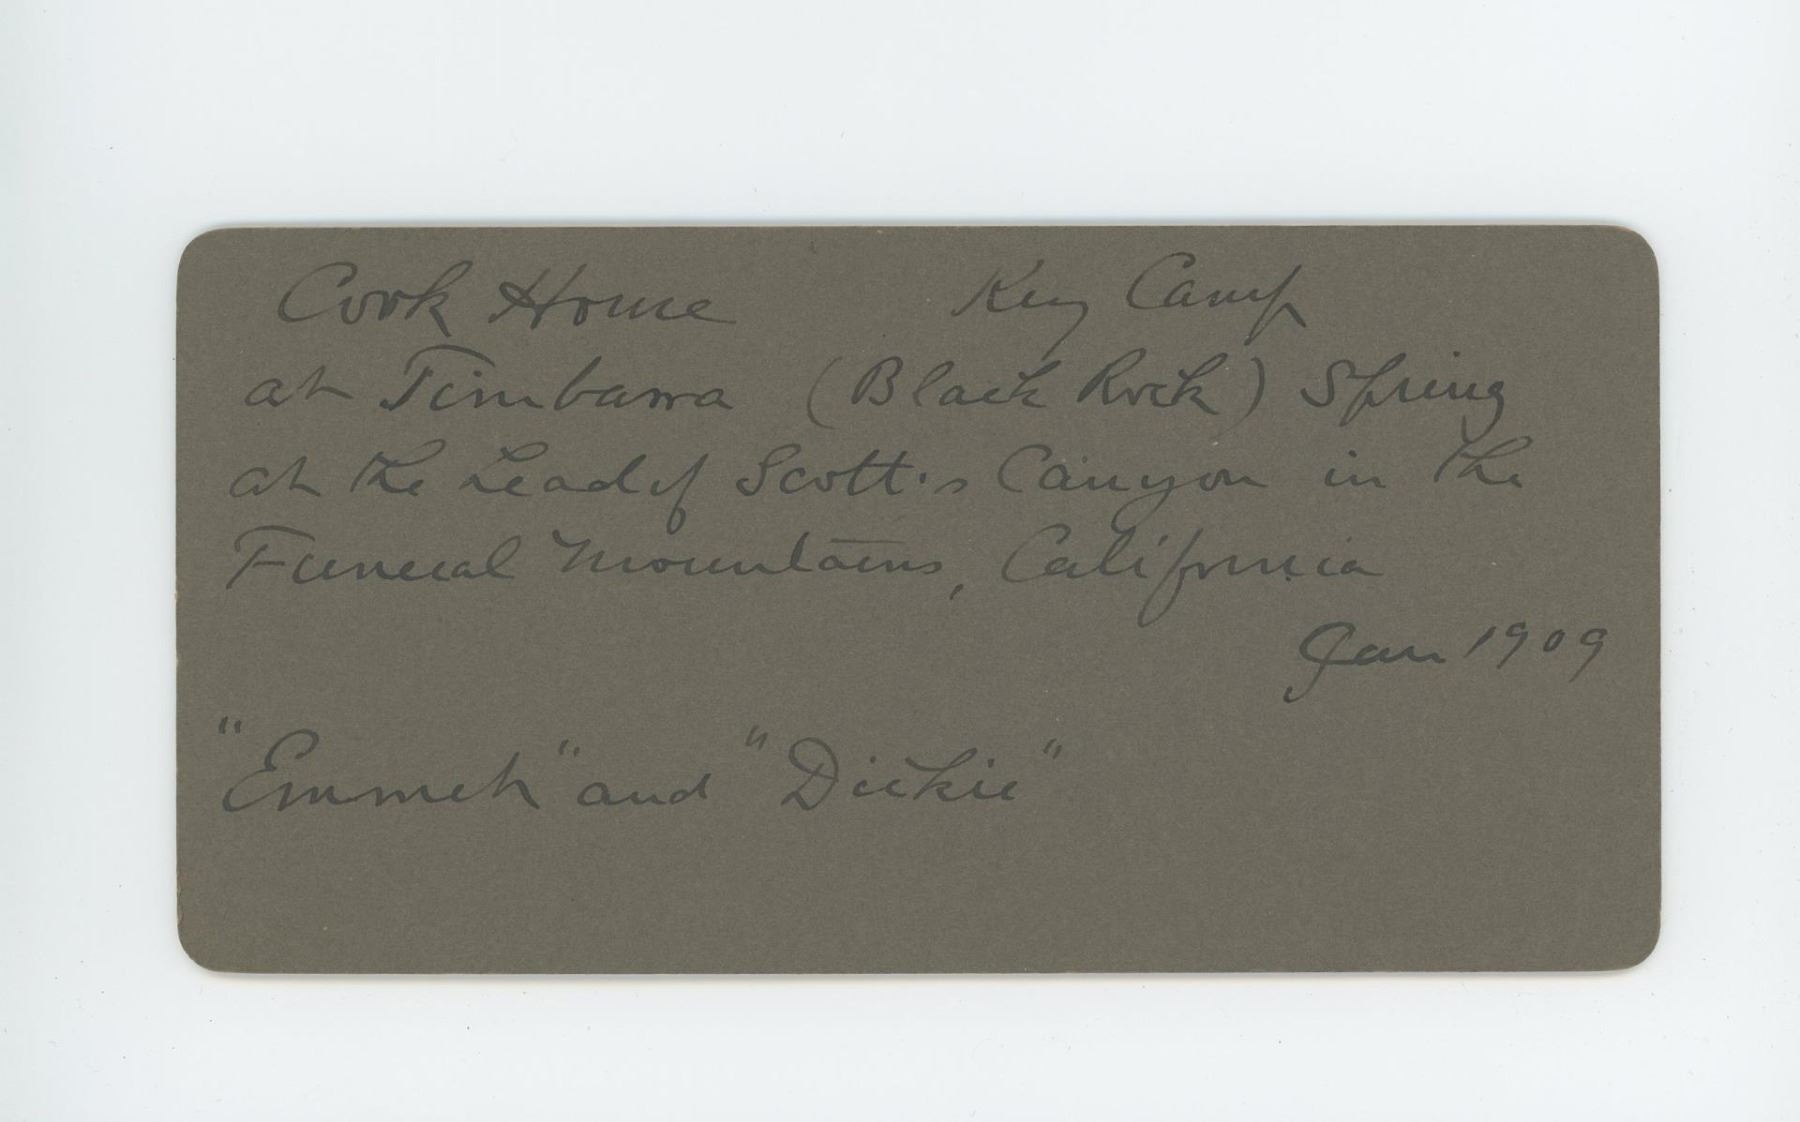 Cook House Key Camp
at Timbarra (Black Rock) Spring
at the head of Scott's Canyon in the
Funeral Mountains, California
Jan 1909
"Emmet" and "Dickie"